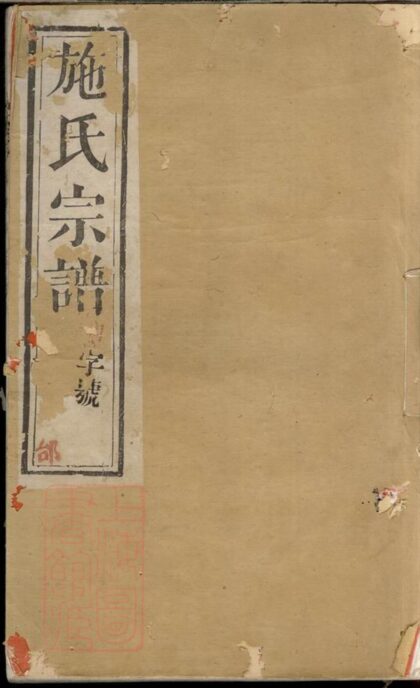 施氏宗譜
字號
邰